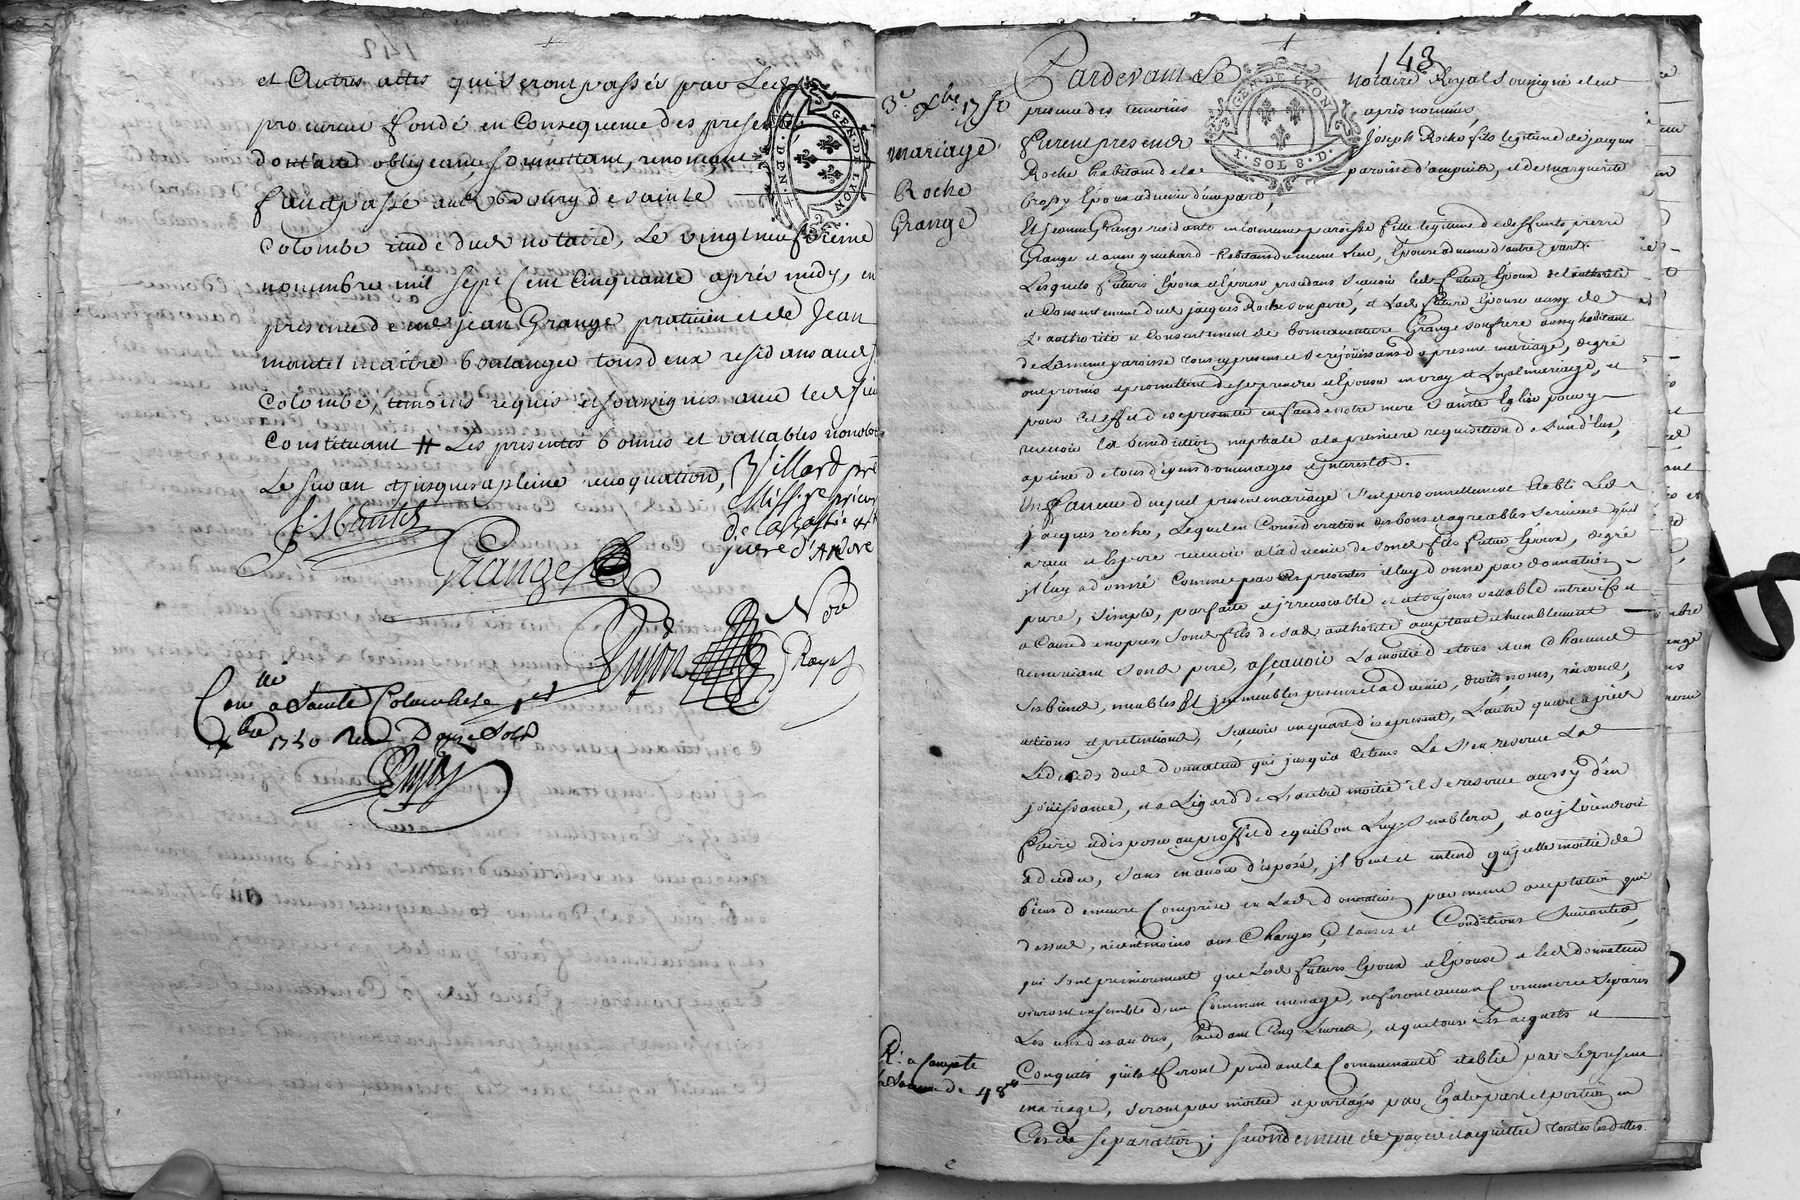 et Autres actes qui seront passés par Led
procureur fondé en Consequence des presentes
dont acte obligeant, soumettant, renonçant
fait et passé aud bourg de sainte
Colombe etude dud notaire, Le vingt neufvieme
novembre mil sept Cent Cinquante après midy, en
presence de me jean Grange praticien et de Jean
montel maitre boulanger tous deux residans aud
Colombe, temoins requis et soussignés avec led sieur
Constituant # Les presentes bonnes et vallables nonobs
Le suran et jusques a pleine revoquation,
Villard prê
Grange
Nore
Royal
Dujon
Con lle a Sainte Colombe le 1er
xbre 1750 Recu Douze Sols
Dujon
GEN. DE LYON
148
Pardevant Le
notaire Royal Sousigné et en
presence des temoins
après nommés,
GEN. DE LYON
1. SOL 8. D.
3e xbre 1750
mariage
Roche
Grange
furent presents
Joseph Roche fils legitime de jacques
Roche habitant de la
paroisse d'ampuis, et de marguerite
brossy Epoux advenir d'une part,
Et jeanne Grange residante en la meme paroisse fille legitime de deffunts pierre
Grange et anne guichard habitans du meme Lieu, Epouse advenir d'autre part.
Lesquels futurs Epoux et Epouse procedans scavoir led futur Epoux de l'authorité
et Consentement dud jacques Roche son pere, et Lad future Epouse aussy de
L'authorité et Consentement de bonnaventure Grange son frere aussy habitant
de La meme paroisse tous cy presens et se rejouissans du present mariage, de gré
ont promis et promettent de se prendre et Epouser en vray et Loyal mariage, et
pour cet effet de se presenter en face de notre mere Sainte Eglise pour y
recevoir la benediction nuptiale a la premiere requisition de L'un d'Eux,
a peine de tous depens dommages et interests.
En faveur duquel present mariage s'est personnellement Etabli Led
jacques roche, Lequel en Consideration des bons et agreables services qu'il
a reçu et Espere recevoir a l'advenir de sond fils futur Epoux, de gré
il luy a donné comme par ces presentes il luy donne par donnation
pure, simple, parfaite et irrevocable et a toujours vallable entrevifs et
a Cause de nopces, sond fils de sad authorité acceptant et humblement
remerciant sond pere, asçavoir La moitié de tous et un chacuns
ses biens, meubles Et jmmeubles presens et advenir, droits, noms, raisons,
actions et pretentions, scavoir un quart des apresent, L'autre quart après
Le deceds dud donnateur qui jusqu'a Ce tems La s'en reserve La
jouissance, et a L'egard de L'autre moitié il se reserve aussy d'en
faire et disposer au proffit de qui bon Luy Semblera, et ou il viendroit
a deceder, sans en avoir disposé, il veut et entend qu'icelle moitié de
biens demeure Comprise en Lad donnation par meme acceptation que
dessus, neantmoins aux Charges, Clauses et Conditions Suivantes,
qui sont premierement que Lesd futurs Epoux et Epouse et led donnateur
vivront ensemble d'un Commun menage, ne feront aucun Commerce separés
Les uns des autres, Excedant Cinq Livres, et que tous Les acquets et
Conquets qu'ils feront pendant La Communauté etablie par Le present
mariage, seront par moitié et partagés par Egale part et portion en
Cas de separation; secondement de payer et acquitter toutes les dettes
R: a compte
la somme de 48 ll